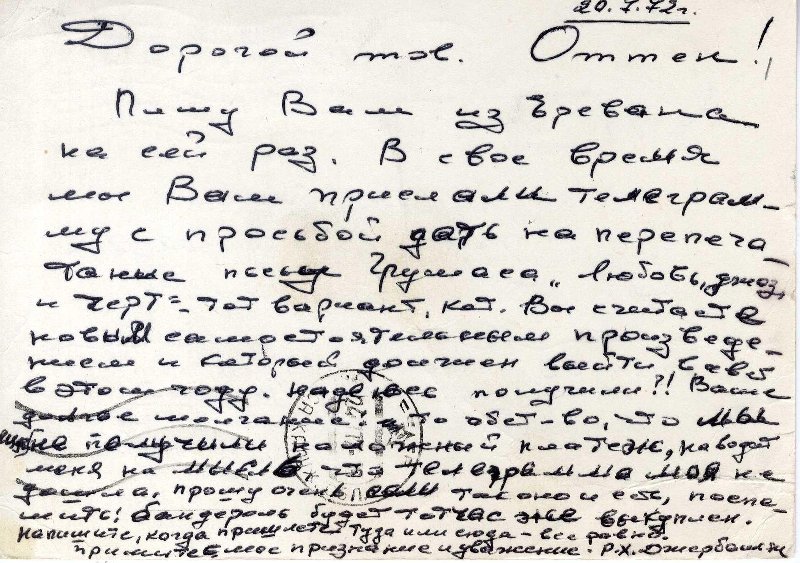 20.7.72г.
Дорогой тов. Оттен!
Пишу Вам из Еревана
на сей раз. В свое время
мы Вам прислали телеграм-
му с просьбой дать на перепеча-
танье пьесы Грушаса „Любовь, джаз
и черт" - тот вариант, кот. Вы считаете
новым самостоятельным произведе-
нием и который должен выйти в свет
в этом году. Надеюсь получили?! Ваше
долгое молчание и то обст-во, что мы
не получили наложный платеж, наводят
меня на мысль что телеграмма моя не
дошла, прошу очень если таково и есть, поспе-
шить! бандероль будет тотчас же выкуплен.
напишите, когда пришлете туда или сюда - все равно.
примите мое признание и уважение. Р.Х. Джербашян